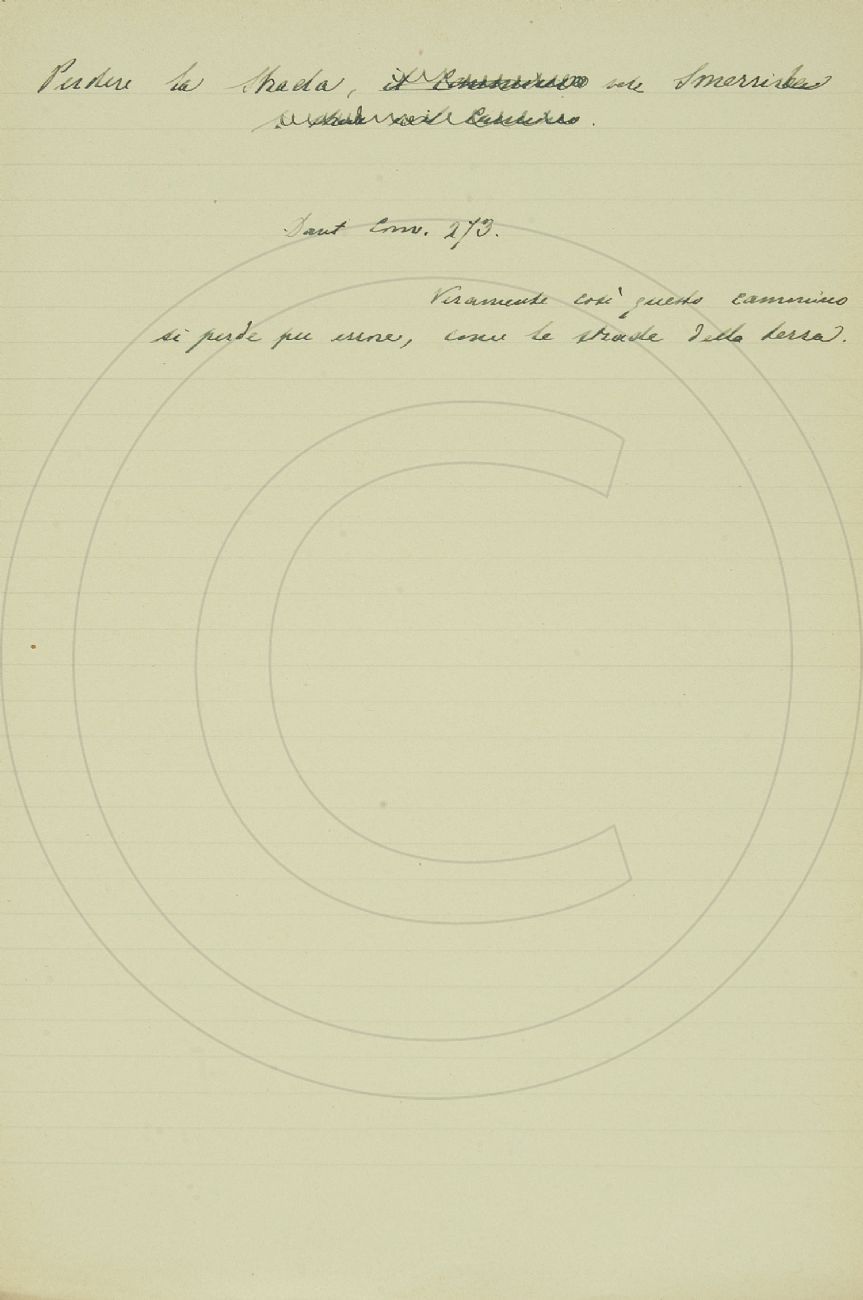 Perdere la strada, il cammino vale Smarrirla
Dant Conv. 273.
Veramente così questo cammino
si perde per errore, come le strade della terra.